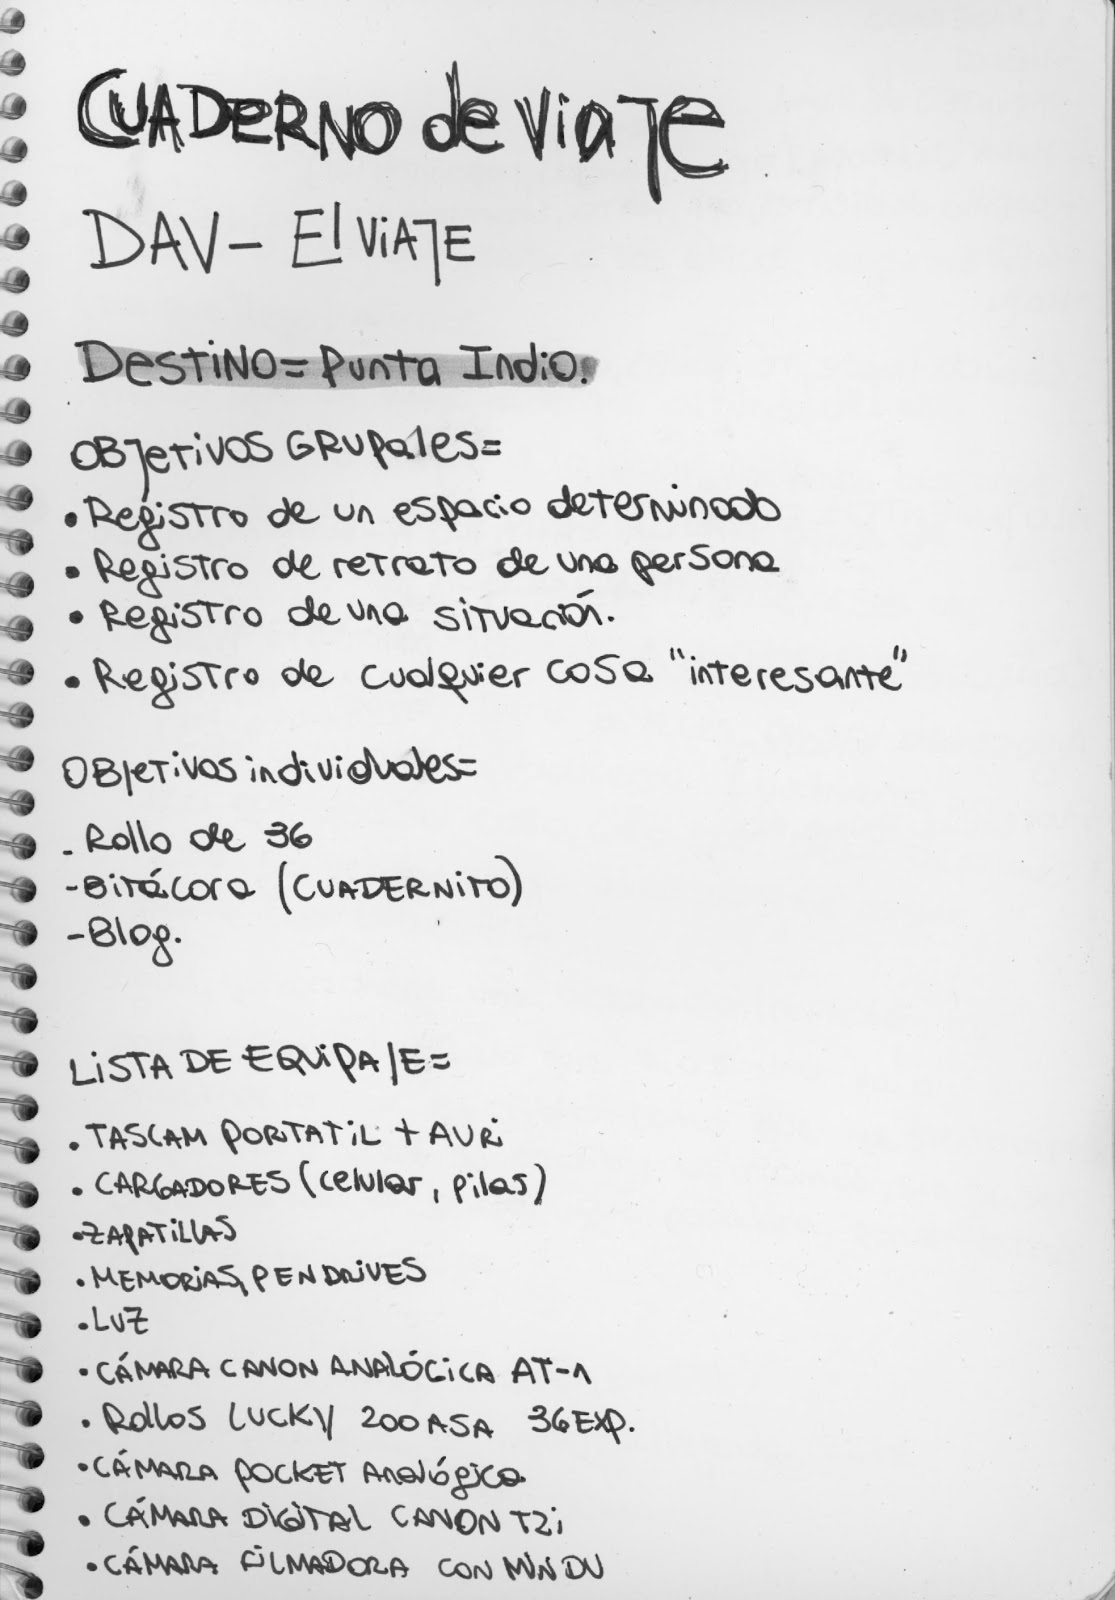 CUADERNO de viaje
DAV - El viaje
Destino = Punta Indio.
Objetivos grupales =
• Registro de un espacio determinado
• Registro de retrato de una persona
• Registro de una situación.
• Registro de cualquier cosa "interesante"
Objetivos individuales =
- Rollo de 36
- Bitácora (CUADERNITO)
- Blog.
LISTA DE EQUIPAJE =
• TASCAM PORTATIL + AURi
• CARGADORES (celular, pilas)
• ZAPATILLAS
• MEMORIAS, PENDRIVES
• LUZ
• CÁMARA CANON ANALÓGICA AT-1
• Rollos LUCKY 200 ASA 36 EXP.
• CÁMARA POCKET Analógica
• CÁMARA DIGITAL CANON T2i
• CÁMARA FILMADORA CON MINI DV